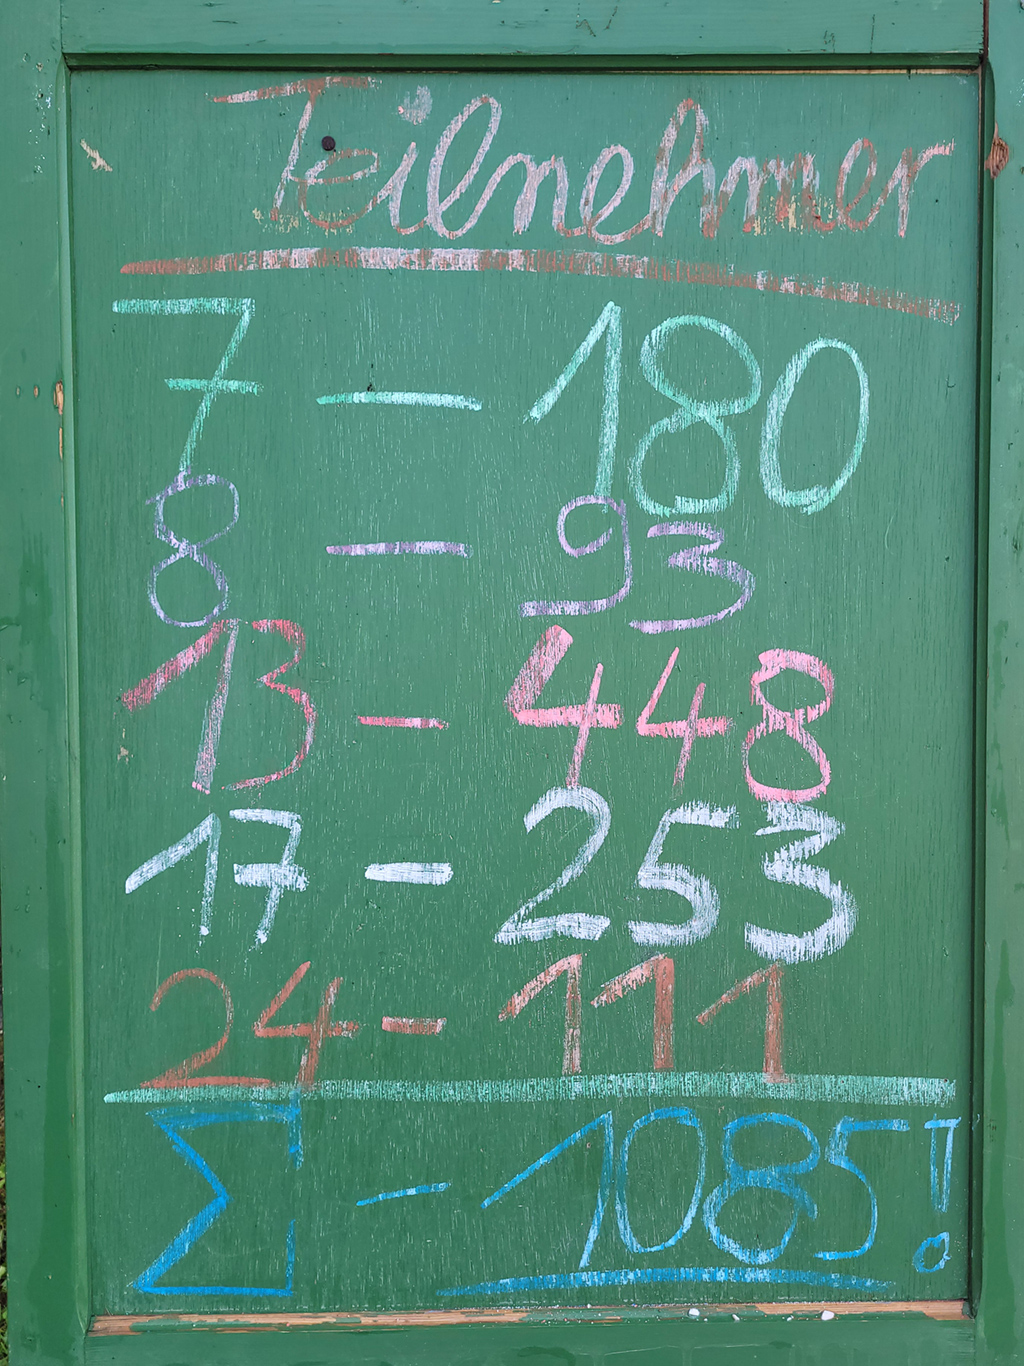 Teilnehmer
7 — 180
8 — 93
13 - 448
17 - 253
24 - 111
∑ - 1085!